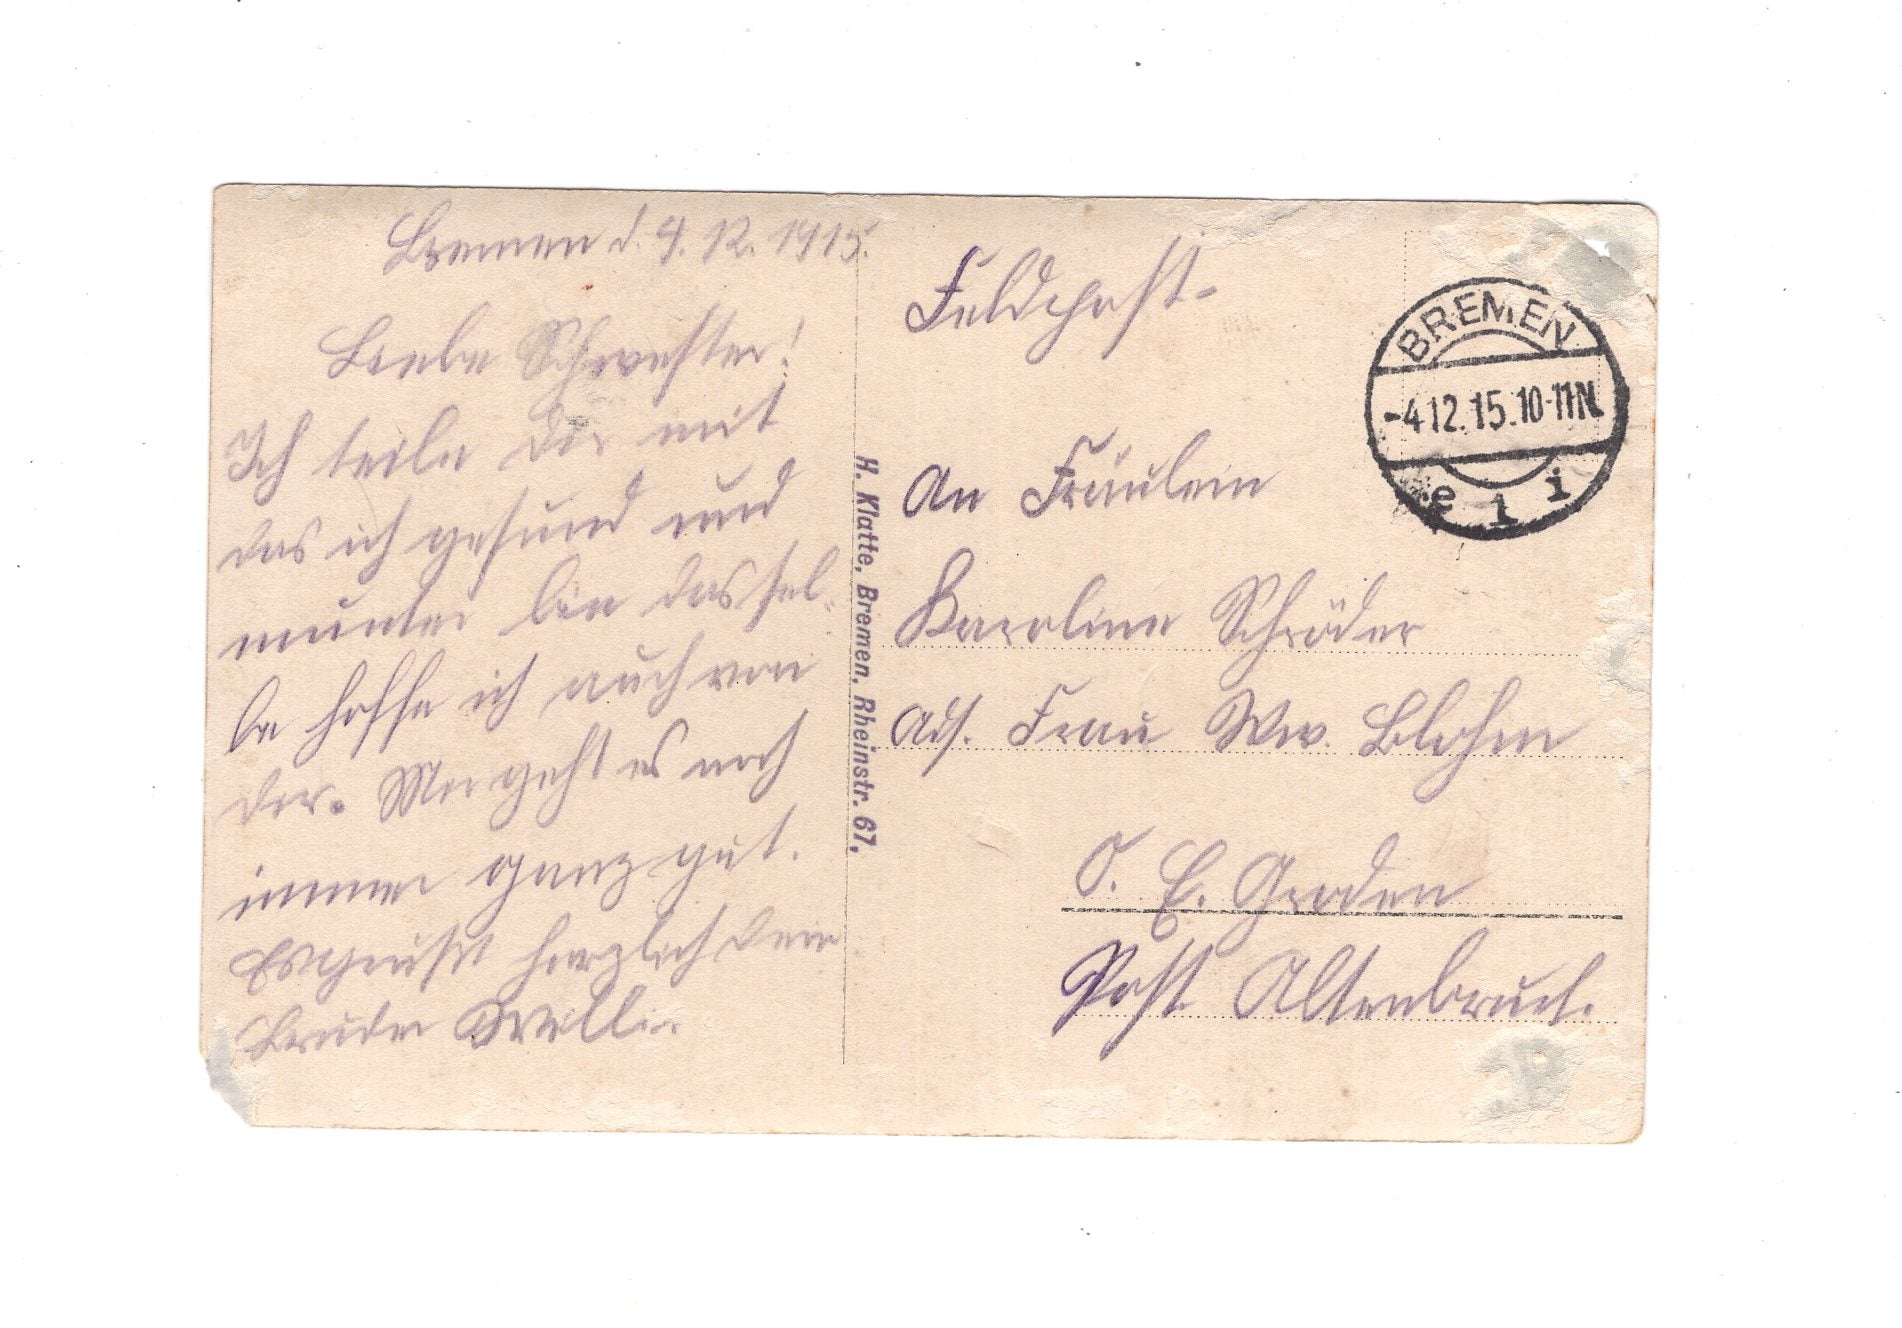 Bremen d. 4. 12. 1915.
Liebe Schwester!
Ich teile dir mit
das ich gesund und
munter bin dassel-
be hoffe ich auch von
dir. Mir geht es noch
immer ganz gut.
Es grüßt herzlich dein
Bruder Willi.
H. Klatte, Bremen, Rheinstr. 67.
Feldpost-
BREMEN
-4.12.15.10-11N.
An Fräulein
Karoline Schröder
Ads. Frau Ww. Blohm
O. E. Groden
Post Altenbruch.